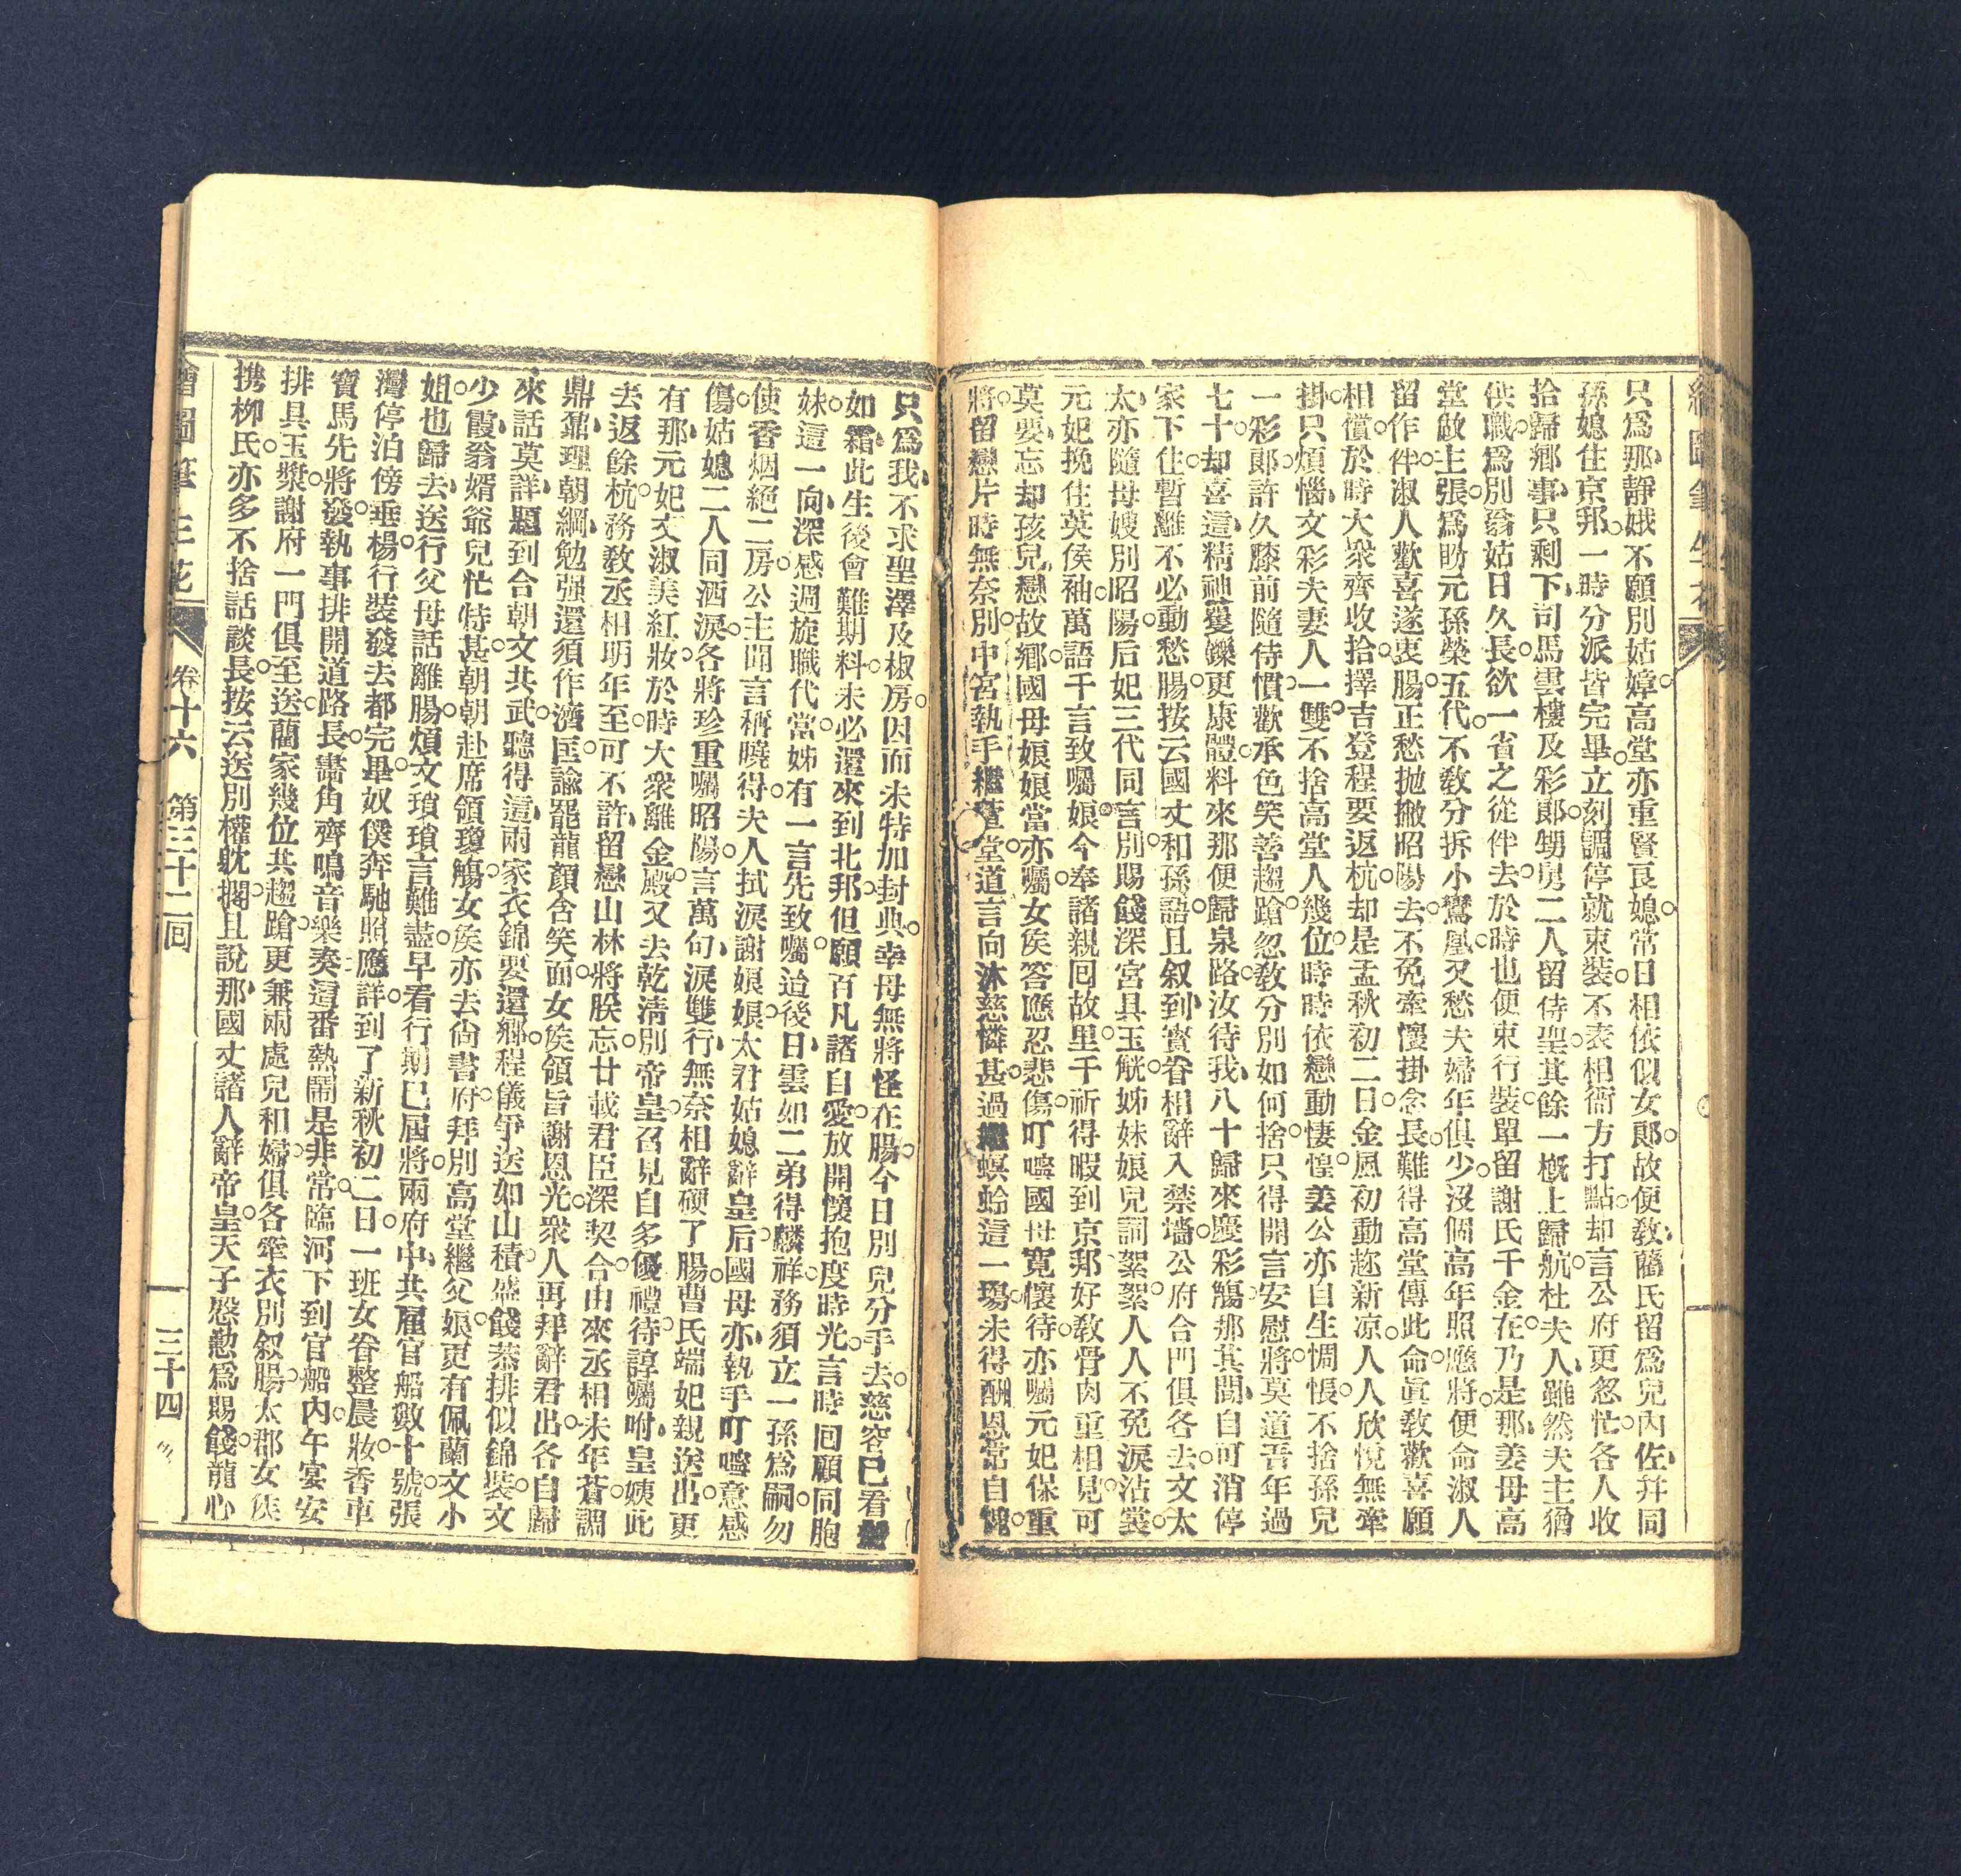 繪圖筆生花
只爲那靜娥不願別姑嫜高堂亦重賢良媳常日相依似女郎故便敎藺氏留爲兒內佐幷同
孫媳住京邦一時分派皆完畢立刻調停就束裝不表相衙方打點却言公府更忽忙各人收
拾歸鄉事只剩下司馬雲樓及彩郎甥舅二人留侍聖其餘一槪上歸航杜夫人雖然夫主猶
供職爲別翁姑日久長欲一省之從伴去於時也便束行裝單留謝氏千金在乃是那姜母高
堂啟主張爲盼元孫榮五代不敎分拆小鸞凰又愁夫婦年俱少沒個高年照應將便命淑人
留作伴淑人歡喜遂衷腸正愁抛撇昭陽去不免牽懷掛念長難得高堂傳此命眞敎歡喜願
相償於時大衆齊收拾擇吉登程要返杭却是孟秋初二日金風初動趂新凉人人欣悅無牽
掛只煩惱文彩夫妻人一雙不捨高堂人幾位時時依戀動悽惶姜公亦自生惆悵不捨孫兒
一彩郎許久膝前隨侍慣歡承色笑善趨蹌忽敎分別如何捨只得開言安慰將莫道吾年過
七十却喜這精神矍鑠更康體料來那便歸泉路汝待我八十歸來慶彩觴那其間自可消停
家下住暫離不必動愁腸按云國丈和孫語且叙到賓眷相辭入禁墻公府合門俱各去文太
太亦隨母嫂別昭陽后妃三代同言別賜餞深宮具玉觥姊妹娘兒詞絮絮人人不免淚沾裳
元妃挽住英侯袖萬語千言致囑娘今奉諸親回故里千祈得暇到京邦好敎骨肉重相見可
莫要忘却孩兒戀故鄉國母娘娘當亦囑女侯答應忍悲傷叮嚀國母寬懷待亦囑元妃保重
將留戀片時無奈別中宮執手繼萱堂道言向沐慈憐甚過繼螟蛉這一塲未得酬恩常自愧
只爲我不求聖澤及椒房因而未特加封典幸母無將怪在腸今日別兒分手去慈容已看鬢
如霜此生後會難期料未必還來到北邦但願百凡諸自愛放開懷抱度時光言時回顧同胞
妹這一向深感週旋職代當姊有一言先致囑道後日雲如二弟得麟祥務須立一孫爲嗣勿
使香烟絕二房公主聞言稱曉得夫人拭淚謝娘娘太君姑媳辭皇后國母亦執手叮嚀意感
傷姑媳二人同洒淚各將珍重囑昭陽言萬句淚雙行無奈相辭硬了腸曹氏端妃親送出更
有那元妃文淑美紅妝於時大衆離金殿又去乾淸別帝皇召見自多優禮待諄囑咐皇姨此
去返餘杭務敎丞相明年至可不許留戀山林將朕忘廿載君臣深契合由來丞相未年蒼調
鼎鼐理朝綱勉强還須作濟匡諭罷龍顏含笑面女侯領旨謝恩光衆人再拜辭君出各自歸
來話莫詳題到合朝文共武聽得這兩家衣錦要還鄉程儀爭送如山積盛餞恭排似錦裝文
少霞翁婿爺兒忙恃甚朝朝赴席領瓊觴女侯亦去尙書府拜別高堂繼父娘更有佩蘭文小
姐也歸去送行父母話離腸煩文瑣瑣言難盡早看行期已屆將兩府中共雇官船數十號張
灣停泊傍垂楊行裝發去都完畢奴僕奔馳照應詳到了新秋初二日一班女眷整晨妝香車
寶馬先將發執事排開道路長畵角齊鳴音樂奏這番熱鬧是非常臨河下到官船內午宴安
排具玉漿謝府一門俱至送藺家幾位共趨蹌更兼兩處兒和婦俱各牽衣別叙腸太郡女侯
携柳氏亦多不捨話談長按云送別權躭擱且說那國丈諸人辭帝皇天子慇懃爲賜餞龍心
繪圖筆生花 卷十六 第三十二回 三十四